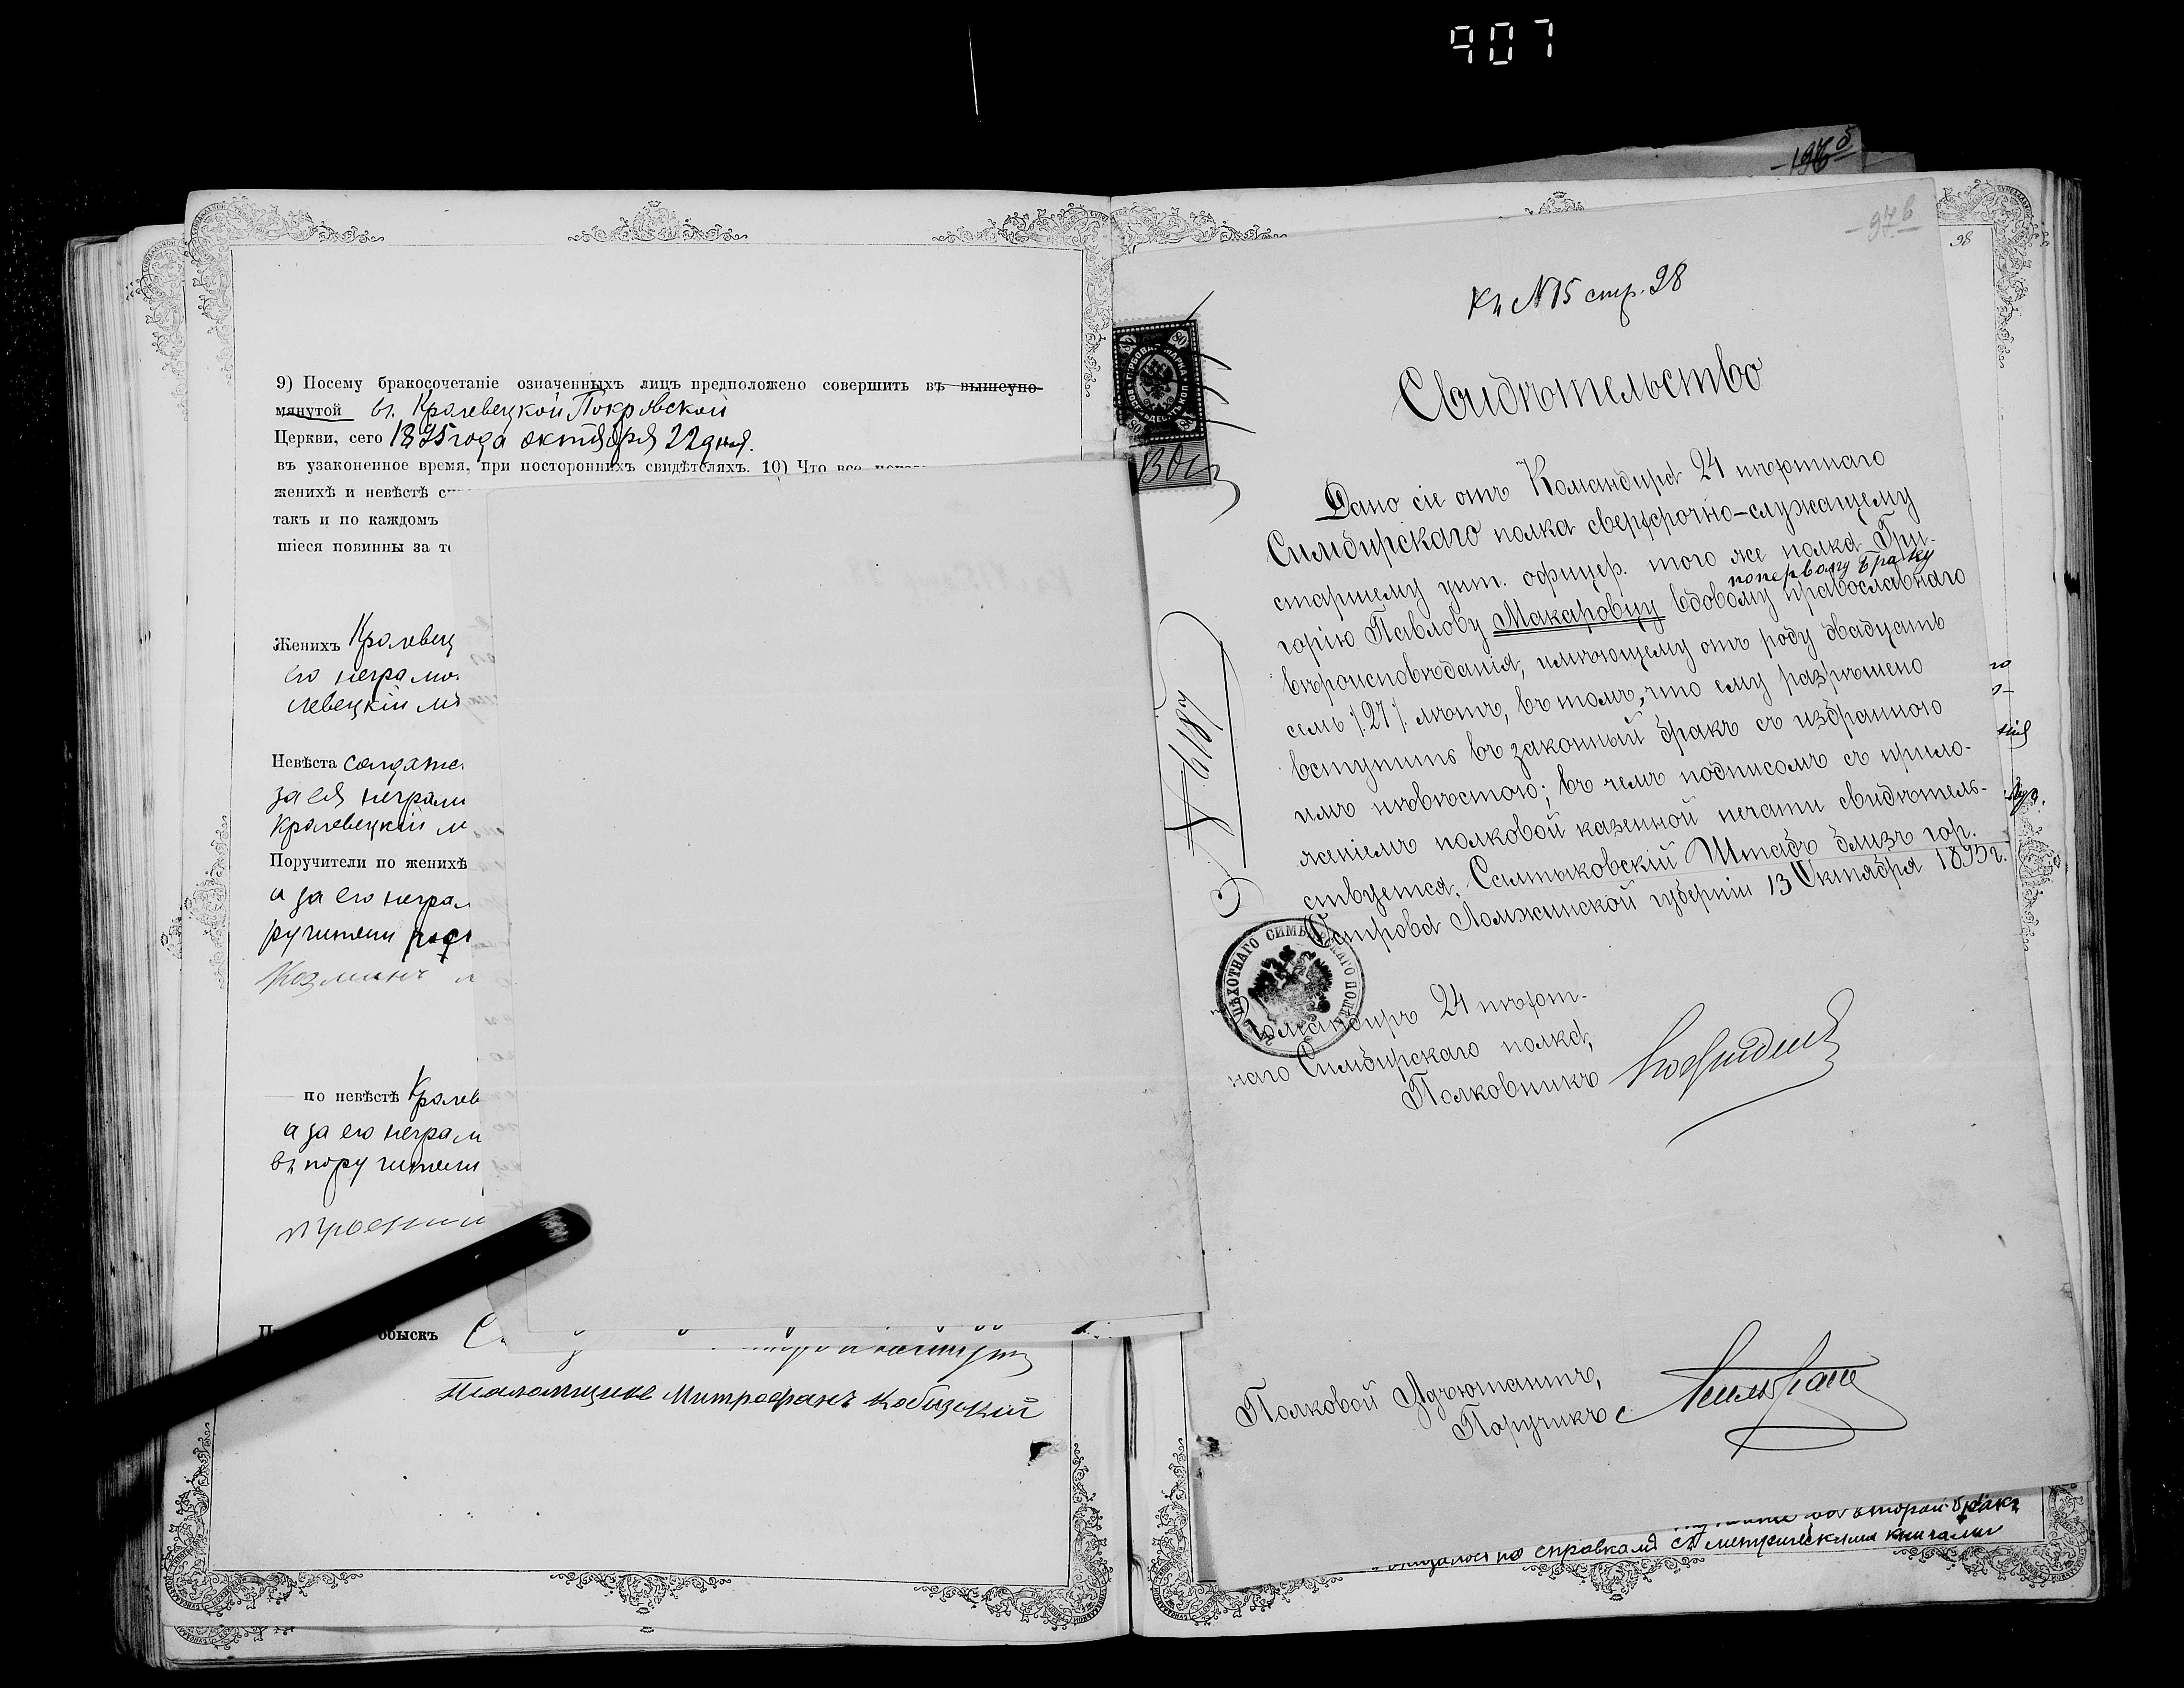 907
9) Посему бракосочетаніе означенныхъ лицъ предположено совершить въ вышеупо-
мянутой въ Кролевецкой Покровской
Церкви, сего 1895 года октября 22 дня.
въ узаконенное время, при постороннихъ свидѣтеляхъ. 10) Что все
женихѣ и невѣстѣ
такъ и по каждомъ
шіеся повинны за
Женихъ Кролевец
его неграмо
левецкій
Невѣста солдатс
за ея неграм
Кролевецкій
Поручители по женихѣ
а за его неграм
ручители
Козминъ
по невѣстѣ Кролев
а за его неграм
въ поручители
обыскъ
Псаломщикъ Митрофанъ
97в
98
Къ №15 стр. 98
ГЕРБОВАЯ МАРКА
ВОСЕМЬДЕСЯТЪ КОП.
80
Свидѣтельство
Дано сіе отъ Командира 24 пѣхотнаго
Симбирскаго полка сверхсрочно-служащему
старшему унт. офицер. того же полка Гри-
по первому браку
горію Павлову Макаровцу вдовому православнаго
вѣроисповѣданія, имѣющему отъ роду двадцать
семь /27/ лѣтъ, въ томъ, что ему разрѣшено
вступить въ законный бракъ съ избранною
имъ невѣстою; въ чемъ подписомъ съ прило-
женіемъ полковой казенной печати свидѣтель-
ствуется. Салтыковскій Штабъ близъ гор.
Острова Ломжинской губерніи 13 Октября 1895 г.
№ 6118
ПѢХОТНАГО СИМБИРСКАГО ПОЛКА
Командиръ 24 пѣхот-
наго Симбирскаго полка,
Полковникъ
Полковой Адъютантъ,
Поручикъ
второй бракъ
по справкамъ съ метрическими книгами